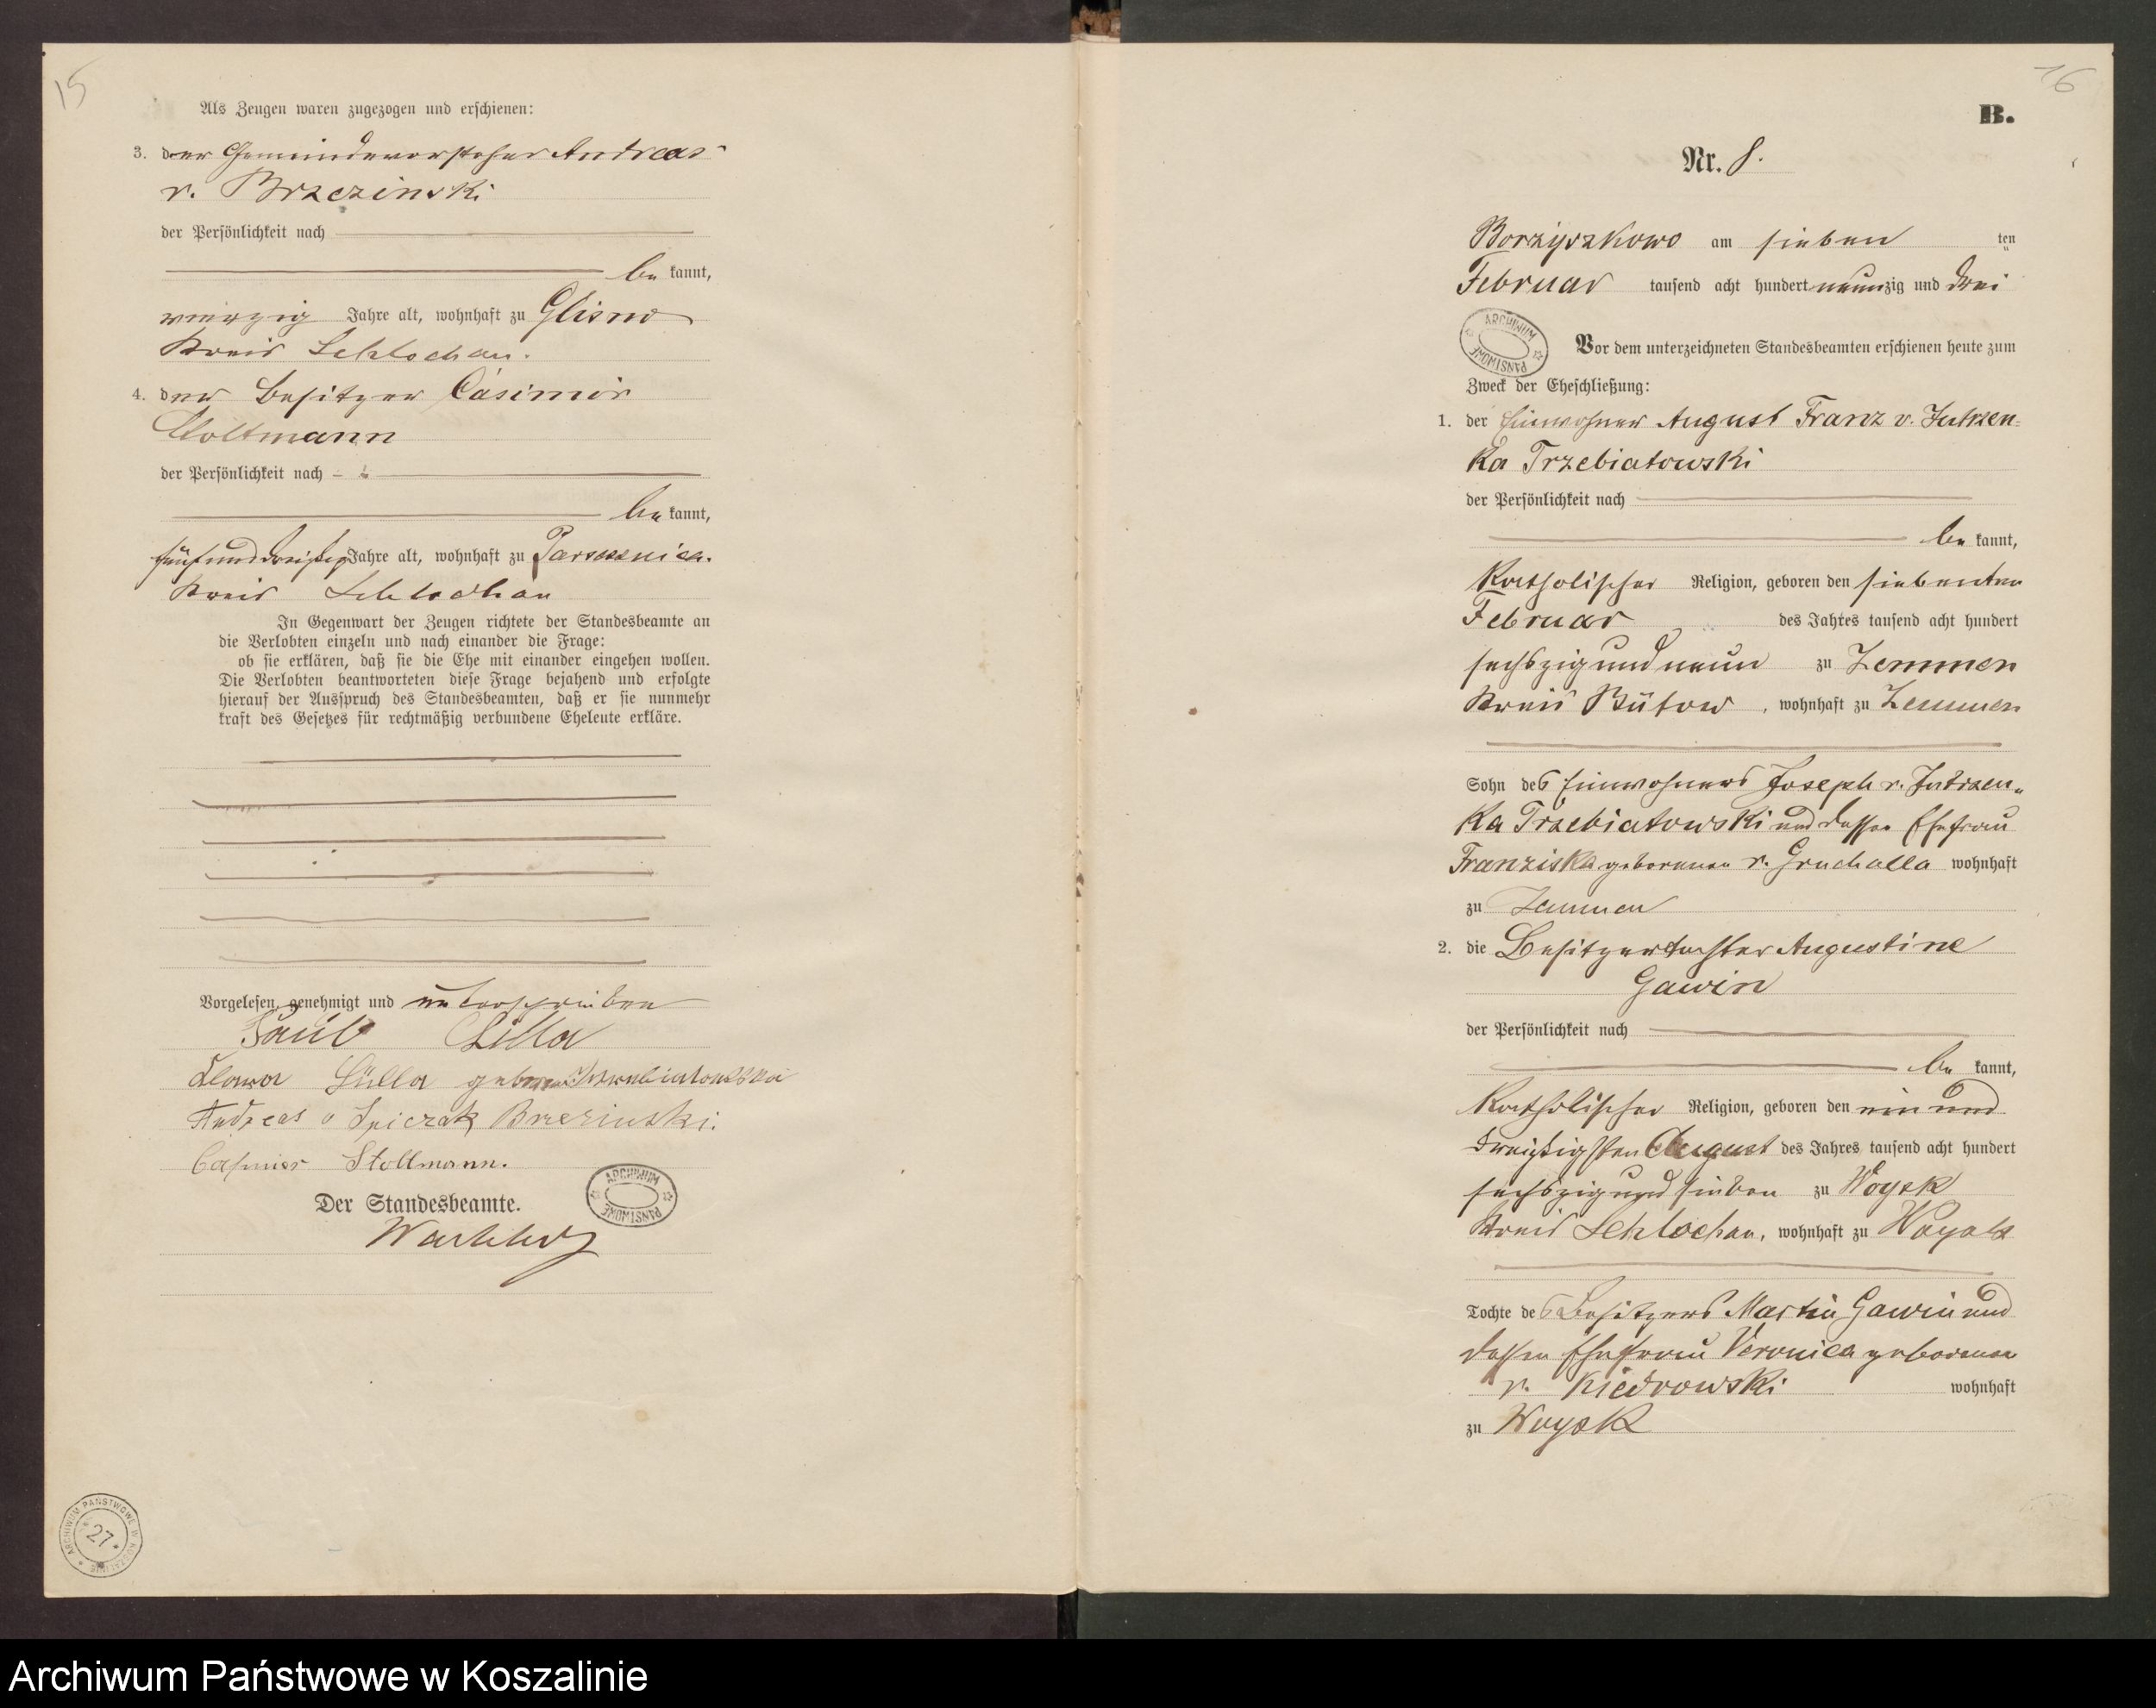 15
Als Zeugen waren zugezogen und erschienen:
3. der Gemeindevorsteher Andreas
v. Brzezinski
der Persönlichkeit nach
be kannt,
vierzig Jahre alt, wohnhaft zu Glisno
Kreis Schlochau.
4. der Besitzer Casimir
Stoltmann
der Persönlichkeit nach
be kannt,
fünfunddreißig Jahre alt, wohnhaft zu
Kreis Schlochau
In Gegenwart der Zeugen richtete der Standesbeamte an
die Verlobten einzeln und nach einander die Frage:
ob sie erklären, daß sie die Ehe mit einander eingehen wollen.
Die Verlobten beantworteten diese Frage bejahend und erfolgte
hierauf der Ausspruch des Standesbeamten, daß er sie nunmehr
kraft des Gesetzes für rechtmäßig verbundene Eheleute erkläre.
Vorgelesen, genehmigt und unterschrieben
Paul
geborene
Andreas v Spiczak Brzezinski.
Casimir Stollmann.
ARCHIWUM PAŃSTWOWE
Der Standesbeamte.
ARCHIWUM PAŃSTWOWE W KOSZALINIE
27
16
B.
Nr. 8.
Borzyszkowo am sieben ten
Februar tausend acht hundert neunzig und drei
ARCHIWUM PAŃSTWOWE
Vor dem unterzeichneten Standesbeamten erschienen heute zum
Zweck der Eheschließung:
1. der Einwohner August Franz v. Jutrzen-
ka Trzebiatowski
der Persönlichkeit nach
be kannt,
katholischer Religion, geboren den siebenten
Februar des Jahres tausend acht hundert
sechszig und neun zu Zemmen
Kreis Bütow, wohnhaft zu Zemmen
Sohn des Einwohners Joseph v. Jutrzen-
ka Trzebiatowski und dessen Ehefrau
Franziska geborenen v. Gruchalla wohnhaft
zu Zemmen
2. die Besitzertochter Augustine
Gawin
der Persönlichkeit nach
be kannt,
katholischer Religion, geboren den ein und
dreißigsten August des Jahres tausend acht hundert
sechszig und sieben zu Woysk
Kreis Schlochau, wohnhaft zu Woysk
Tochte des Besitzers Martin Gawin und
dessen Ehefrau Veronica geborenen
v. Kiedrowski wohnhaft
zu Woysk
Archiwum Państwowe w Koszalinie